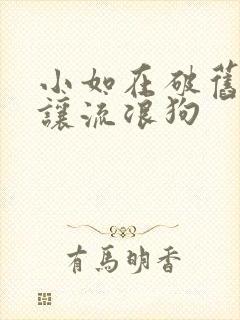 小如在破舊
讓流浪狗
有馬明香